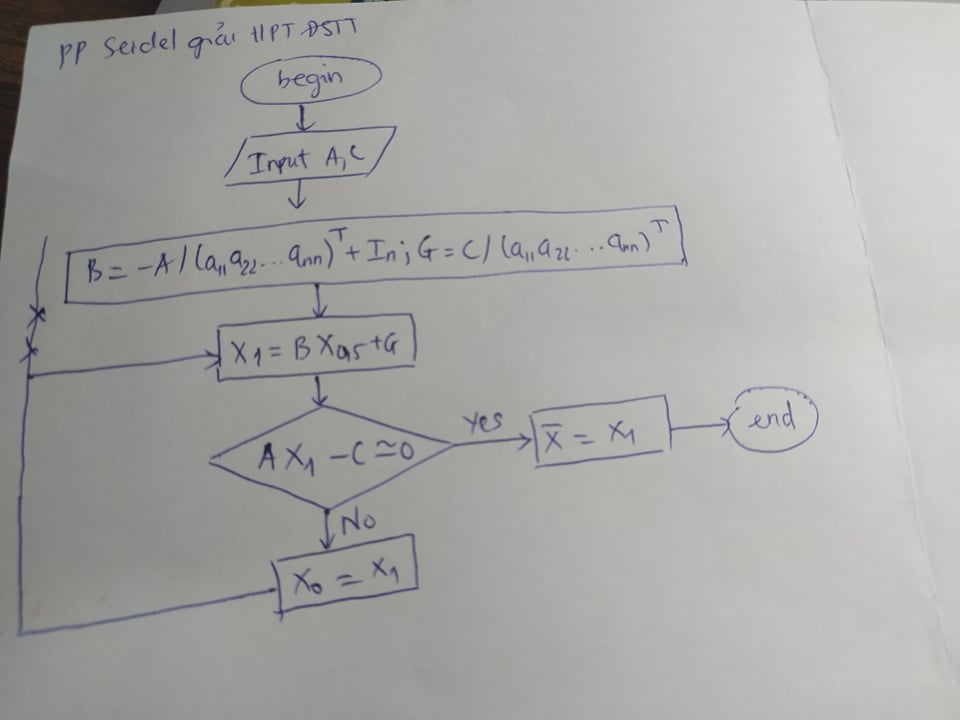 PP Seidel giải HPT ĐSTT
begin
Input A, C
B = -A / (a₁₁ a₂₂ ... aₙₙ)ᵀ + Iₙ; G = C / (a₁₁ a₂₂ ... aₙₙ)ᵀ
X₁ = B X₀,₅ + G
A X₁ - C ≃ 0
yes
X̄ = X₁
end
No
X₀ = X₁